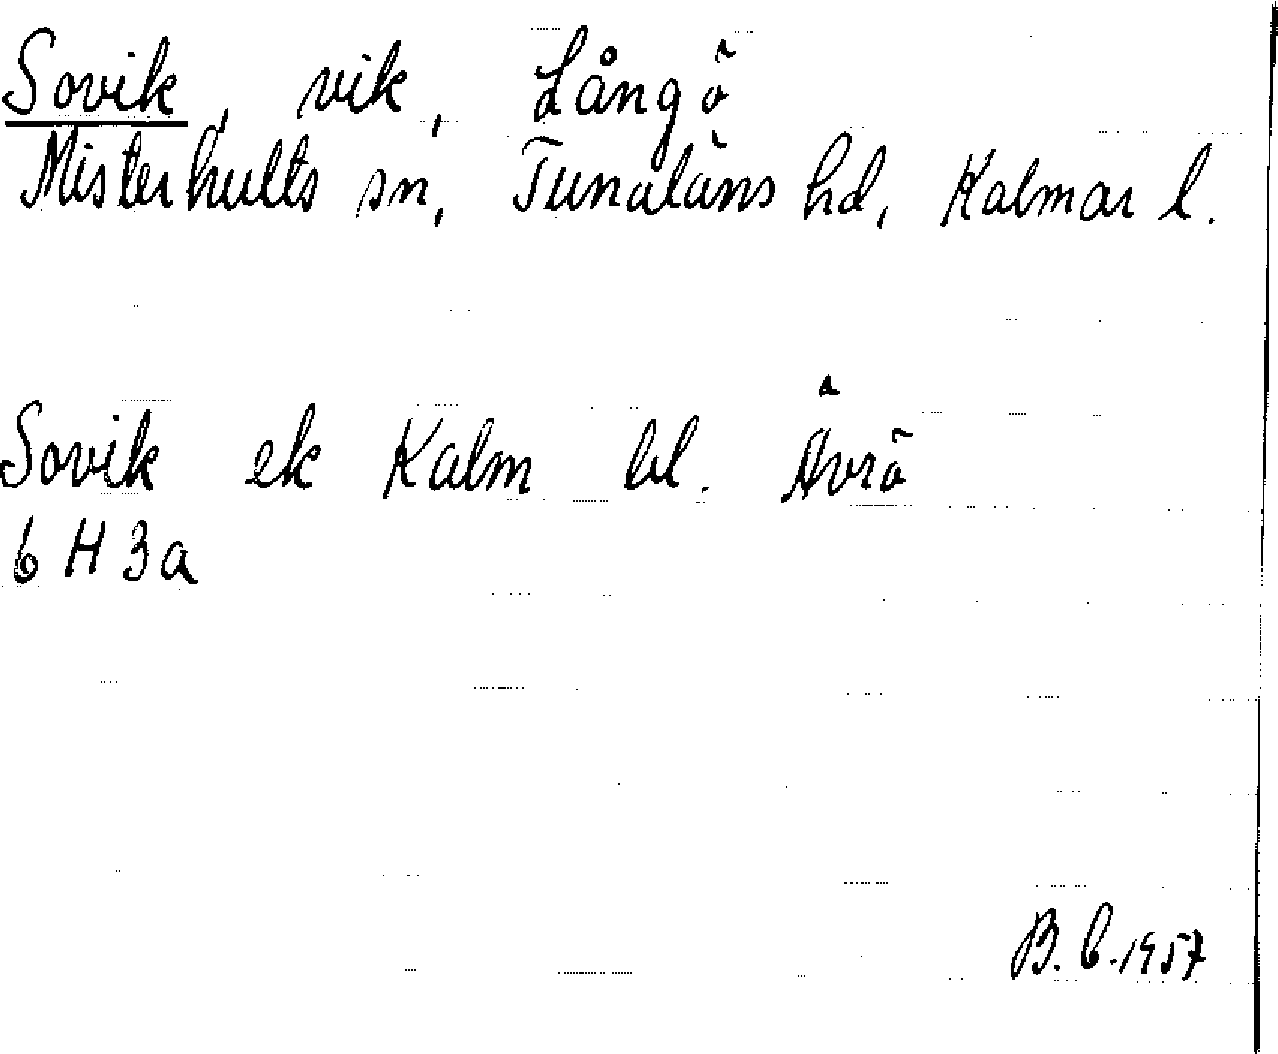 Sovik, vik, Långö
Misterhults sn, Tunaläns hd, Kalmar l.
Sovik ek Kalm bl. Ävrö
6 H 3a
B. C. 1957